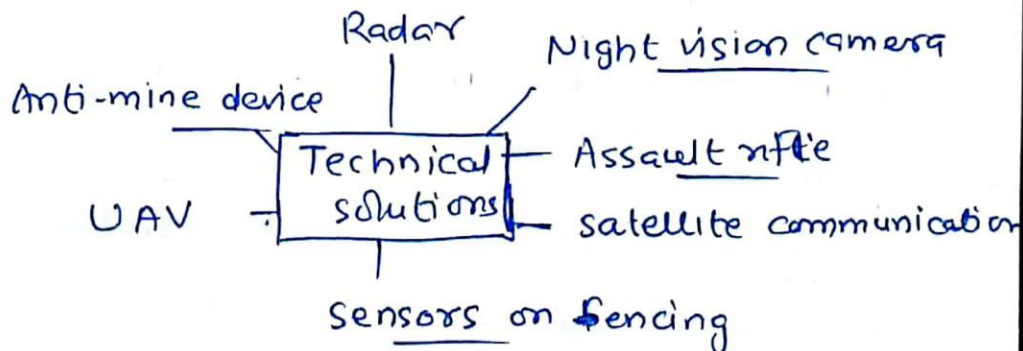 Radar
Night vision camera
Anti-mine device
Technical
solutions
Assault rifle
UAV
satellite communication
sensors on fencing